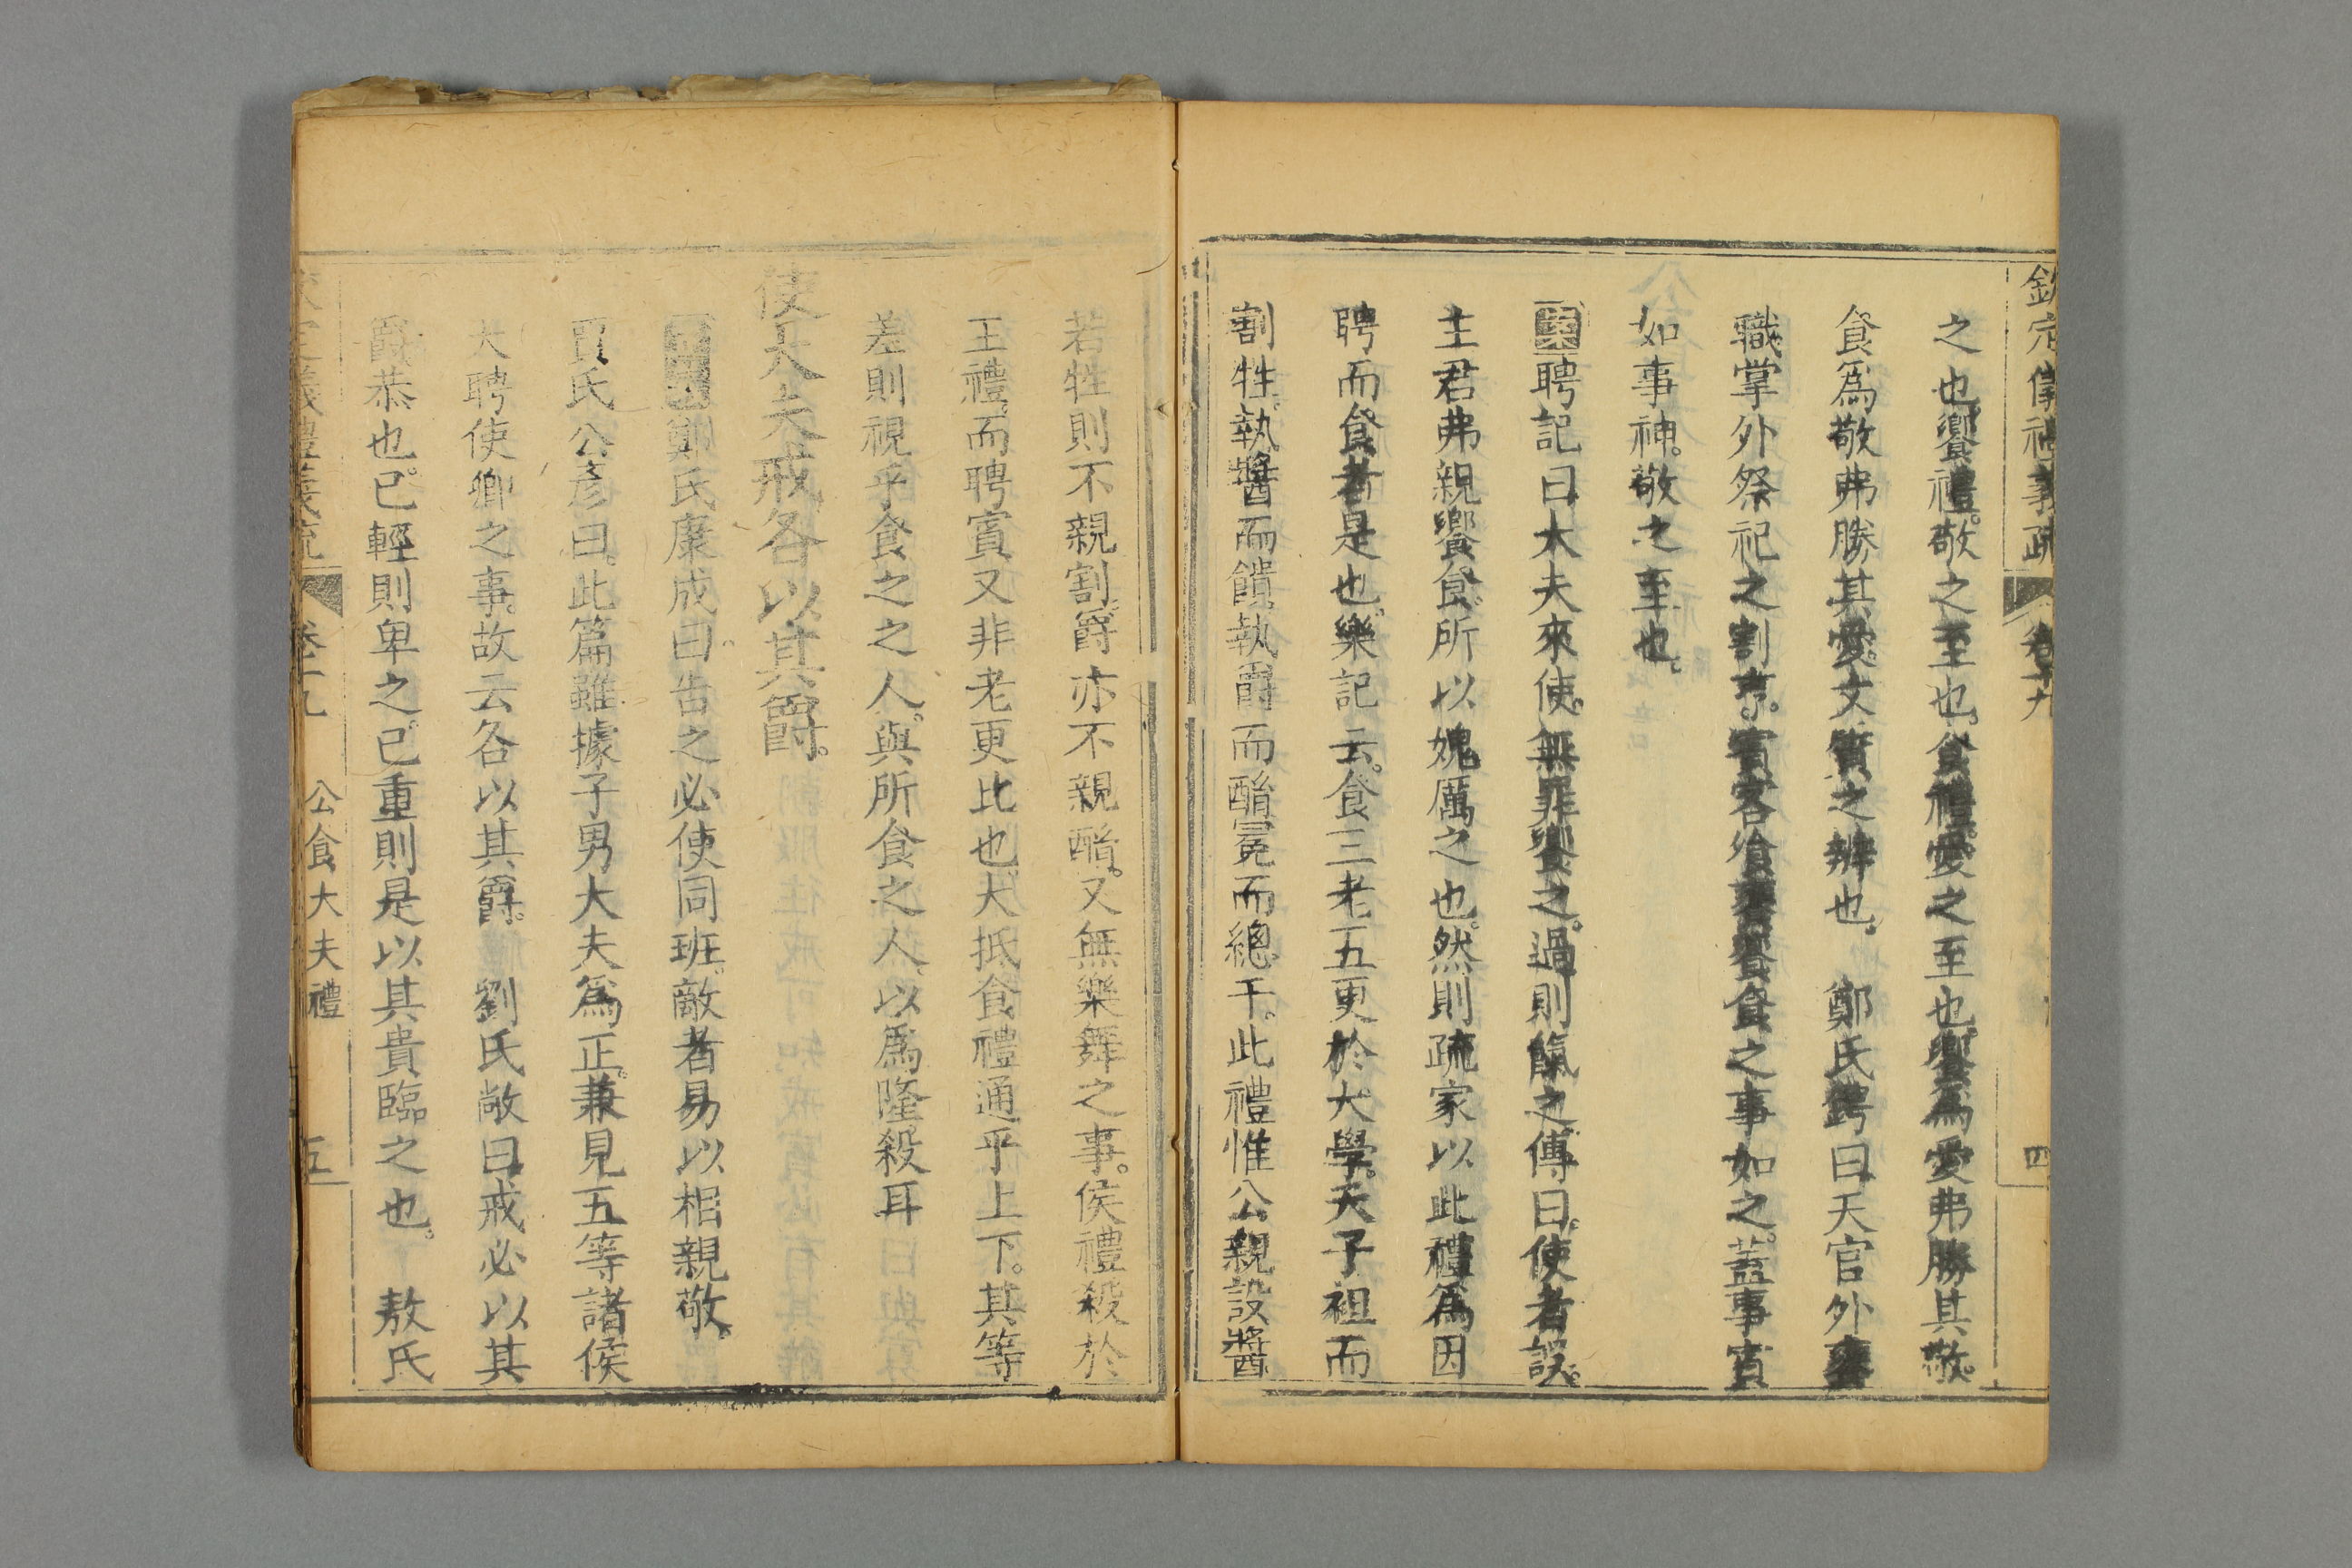 欽定儀禮義疏 卷十九 四
之也饗禮敬之至也食禮愛之至也饗爲愛弗勝其敬
食爲敬弗勝其愛文質之辨也 鄭氏鍔曰天官外饔
職掌外祭祀之割亨賓客飧饔饗食之事如之蓋事賓
如事神敬之至也
案聘記曰大夫來使無罪饗之過則餼之傳曰使者誤
主君弗親饗食所以媿厲之也然則疏家以此禮爲因
聘而食者是也樂記云食三老五更於大學天子袒而
割牲執醬而饋執爵而酳冕而總干此禮惟公親設醬
若牲則不親割爵亦不親酳又無樂舞之事侯禮殺於
王禮而聘賓又非老更比也大抵食禮通乎上下其等
差則視乎食之之人與所食之人以爲隆殺耳
使大夫戒各以其爵
鄭氏康成曰告之必使同班敵者易以相親敬
賈氏公彥曰此篇雖據子男大夫爲正兼見五等諸侯
大聘使卿之事故云各以其爵 劉氏敞曰戒必以其
爵恭也已輕則卑之已重則是以其貴臨之也 敖氏
欽定儀禮義疏 卷十九 公食大夫禮 五